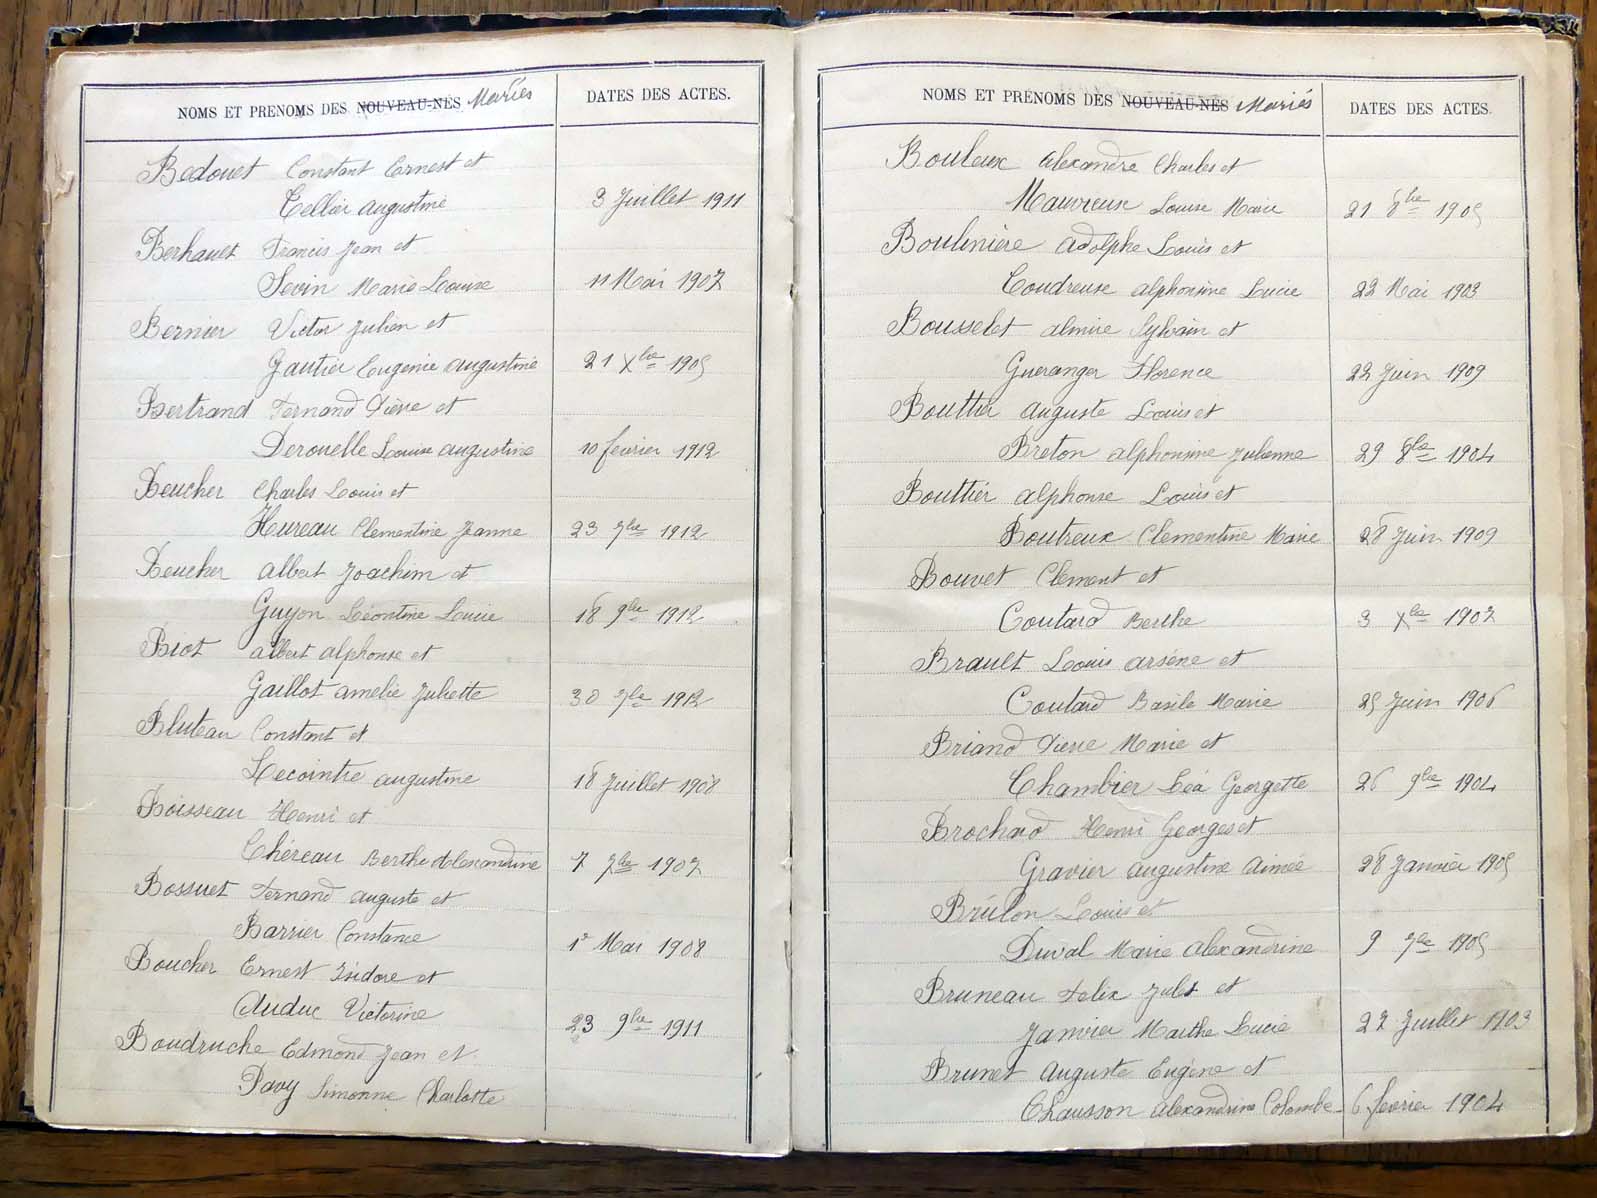 NOMS ET PRENOMS DES NOUVEAU-NÉS Mariés DATES DES ACTES.
Bedouet Constant Ernest et
Tellier Augustine 3 Juillet 1911
Berhault Francis Jean et
Sevin Marie Louise 11 Mai 1907
Bernier Victor Julien et
Gautier Eugenie Augustine 21 Xbre 1905
Bertrand Fernand Pierre et
Derouelle Louise Augustine 10 fevrier 1912
Beucher Charles Louis et
Hureau Clementine Jeanne 23 7bre 1912
Beucher Albert Joachim et
Guyon Léontine Lucie 18 9bre 1912
Biot Albert Alphonse et
Gaillot Amelie Juliette 30 7bre 1912
Bluteau Constant et
Lecointre Augustine 18 Juillet 1908
Boisseau Henri et
Chéreau Berthe Alexandrine 7 7bre 1907
Bossuet Fernand Auguste et
Barrier Constance 1er Mai 1908
Boucher Ernest Isidore et
Auduc Victorine 23 9bre 1911
Boudruche Edmond Jean et
Pavy Simonne Charlotte
NOMS ET PRÉNOMS DES NOUVEAU-NÉS Mariés DATES DES ACTES.
Bouleux Alexandre Charles et
Mauvreux Louise Marie 21 8bre 1905
Boulinière Adolphe Louis et
Coudreuse Alphonsine Lucie 22 Mai 1903
Bousselet Almire Sylvain et
Gueranger Florence 22 Juin 1909
Bouttier Auguste Louis et
Breton Alphonsine Julienne 29 8bre 1904
Bouttier Alphonse Louis et
Boutreux Clementine Marie 28 Juin 1909
Bouvet Clement et
Coutard Berthe 3 Xbre 1907
Brault Louis Arsène et
Coutard Basile Marie 25 Juin 1906
Briand Pierre Marie et
Chambier Léa Georgette 26 9bre 1904
Brochard Henri Georges et
Gravier Augustine Aimée 28 Janvier 1905
Brûlon Louis et
Duval Marie Alexandrine 9 7bre 1905
Bruneau Felix Jules et
Janvier Marthe Lucie 22 Juillet 1903
Brunet Auguste Eugène et
Chausson Alexandrine Colombe 6 fevrier 1904